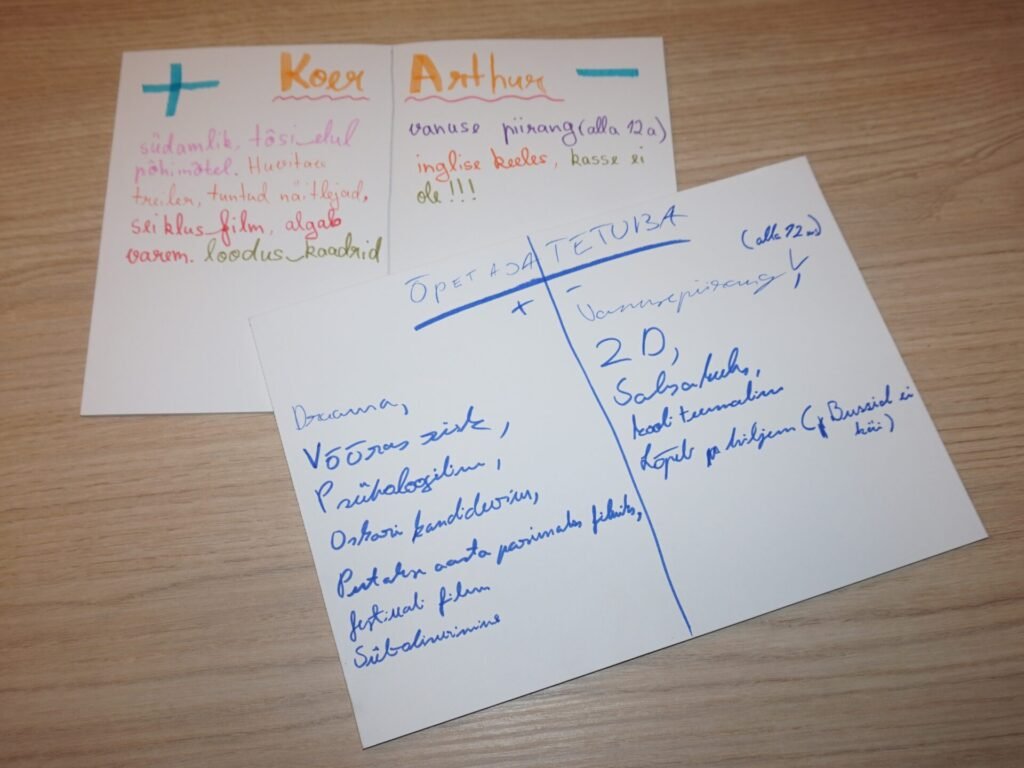 + Koer Arthur -
südamlik, tõsi elul
põhimõtel. Huvitav
treiler, tuntud näitlejad,
seiklus film, algab
varem. loodus kaadrid
vanuse piirang (alla 12 a)
inglise keeles, kasse ei
ole!!!
ÕPETAJATE TUBA
+
Draama,
Võõras
Psühholoogiline,
Oskari kandideerim,
Peetakse aasta parimaks filmiks,
festivali film
-
(alla 12 a)
Vanusepiirang!
2D,
Saksa keeles,
kooli teemaline
Lõpeb hiljem (Bussid ei
käi)